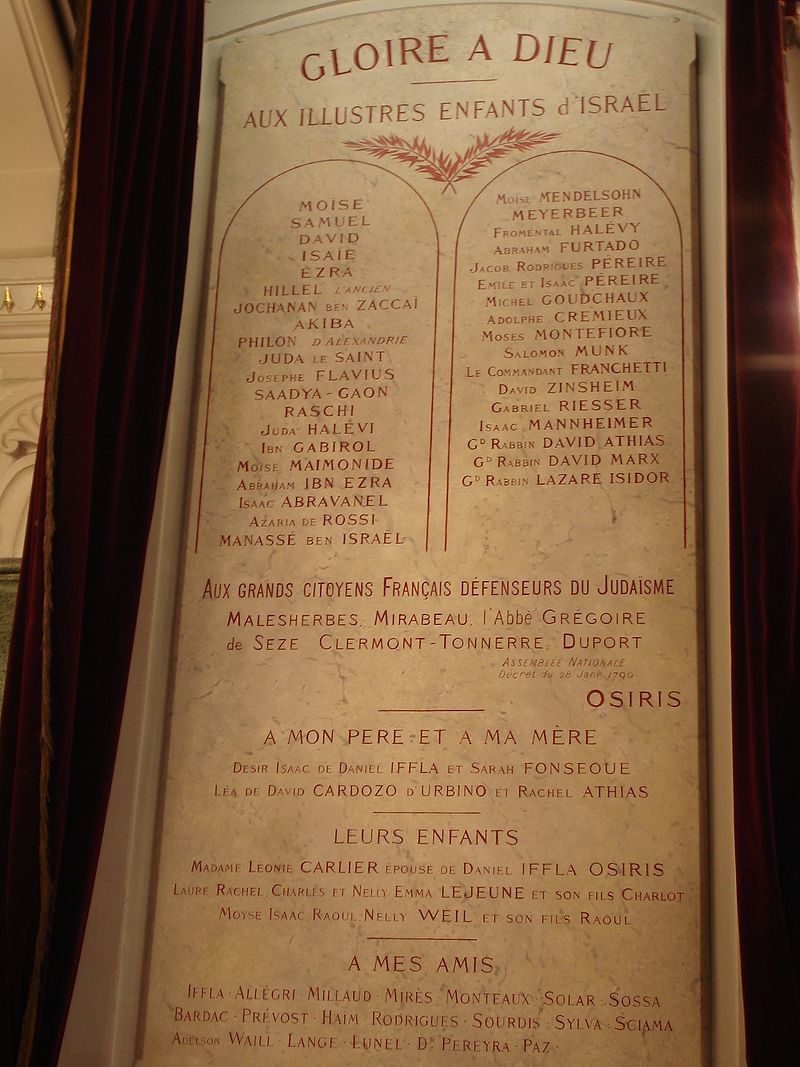 GLOIRE A DIEU
AUX ILLUSTRES ENFANTS d'ISRAËL
MOÏSE
SAMUEL
DAVID
ISAÏE
EZRA
HILLEL L'ANCIEN
JOCHANAN BEN ZACCAÏ
AKIBA
PHILON D'ALEXANDRIE
JUDA LE SAINT
JOSEPHE FLAVIUS
SAADYA-GAON
RASCHI
JUDA HALÉVI
IBN GABIROL
MOÏSE MAIMONIDE
ABRAHAM IBN EZRA
ISAAC ABRAVANEL
AZARIA DE ROSSI
MANASSÉ BEN ISRAËL
MOÏSE MENDELSOHN
MEYERBEER
FROMENTAL HALÉVY
ABRAHAM FURTADO
JACOB RODRIGUES PÉREIRE
EMILE ET ISAAC PÉREIRE
MICHEL GOUDCHAUX
ADOLPHE CREMIEUX
MOSES MONTEFIORE
SALOMON MUNK
LE COMMANDANT FRANCHETTI
DAVID ZINSHEIM
GABRIEL RIESSER
ISAAC MANNHEIMER
GD RABBIN DAVID ATHIAS
GD RABBIN DAVID MARX
GD RABBIN LAZARE ISIDOR
AUX GRANDS CITOYENS FRANÇAIS DÉFENSEURS DU JUDAÏSME
MALESHERBES, MIRABEAU, l'Abbé GRÉGOIRE
de SEZE CLERMONT-TONNERRE, DUPORT
ASSEMBLÉE NATIONALE
Décret du 28 Janv. 1790
OSIRIS
A MON PERE ET A MA MÈRE
DESIR ISAAC DE DANIEL IFFLA ET SARAH FONSEQUE
LÉA DE DAVID CARDOZO D'URBINO ET RACHEL ATHIAS
LEURS ENFANTS
MADAME LÉONIE CARLIER ÉPOUSE DE DANIEL IFFLA OSIRIS
LAURE RACHEL, CHARLES ET NELLY EMMA LEJEUNE ET SON FILS CHARLOT
MOYSE ISAAC RAOUL, NELLY WEIL ET SON FILS RAOUL
A MES AMIS
IFFLA · ALLÉGRI · MILLAUD · MIRÈS · MONTEAUX · SOLAR · SOSSA
BARDAC · PRÉVOST · HAIM · RODRIGUES · SOURDIS · SYLVA · SCIAMA
ADELSON WAILL · LANGE · LUNEL · DR PEREYRA · PAZ ·